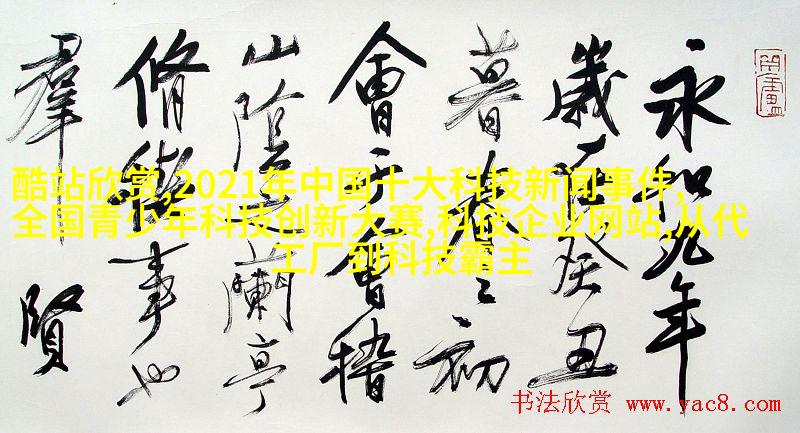 永和九年
歲在癸丑
暮春之初
會于會稽
山陰之蘭亭
脩禊事也
羣賢
酷站欣赏,2021年中国十大科技新闻事件,
全国青少年科技创新大赛,科技企业网站,从代
工厂到科技霸主
书法欣赏 www.yac8.com